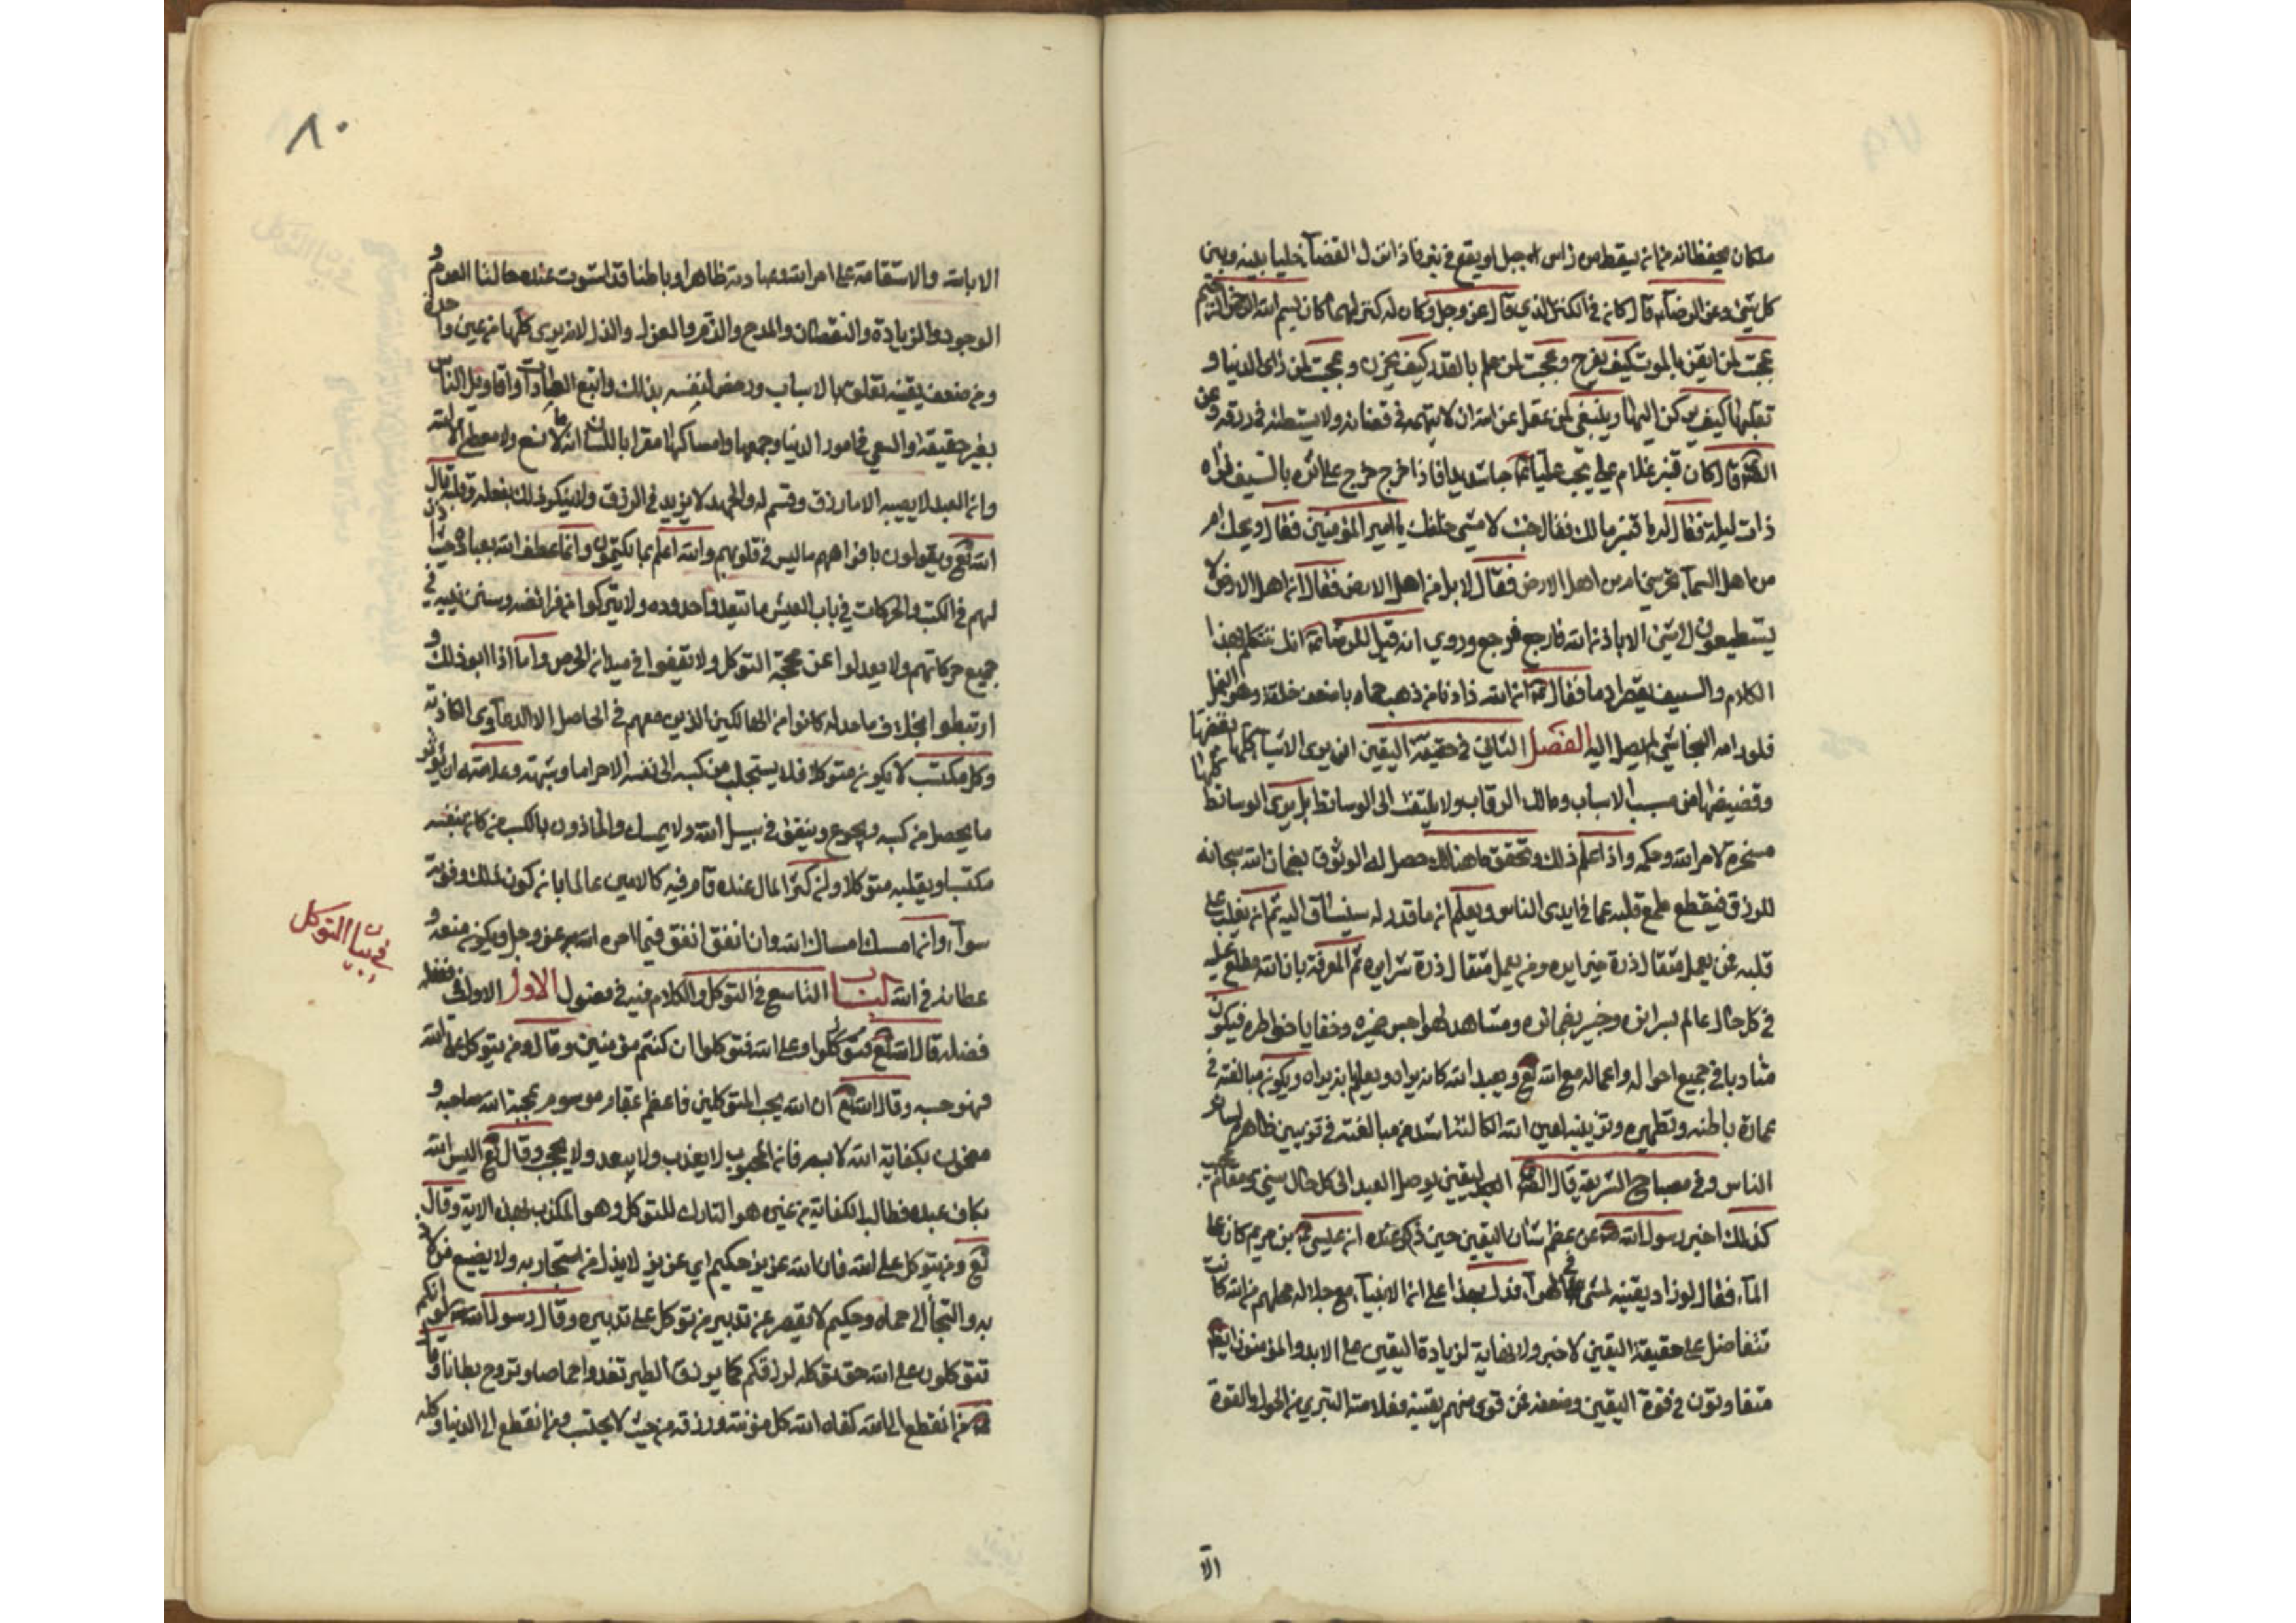 ملكان يحفظانه من ان يسقط من راس جبل او يقع في بئر فاذا نزل القضآء خليا بينه وبين
كل شئ وعن الرضا قال كان في الكنز الذي قال عز وجل وكان تحته كنز لهما كان بسم الله الرحمن الرحيم
عجبت لمن ايقن بالموت كيف يفرح وعجبت لمن علم بالقدر كيف يحزن وعجبت لمن راى الدنيا و
تقلبها كيف يركن اليها وينبغي لمن عقل عن الله ان لا يتهمه في قضائه ولا يستبطئه في رزقه وعن
قال كان قنبر غلام علي يحب عليا حبا شديدا فاذا خرج خرج على اثره بالسيف فراه
ذات ليلة فقال له يا قنبر مالك فقال جئت لامشي خلفك يا امير المؤمنين فقال ويحك ام
من اهل السمآء تحرسني ام من اهل الارض فقال لا بل من اهل الارض فقال ان اهل الارض لا
يستطيعون لي شئ الا باذن الله فارجع فرجع وروي انه قيل للرضا انك تتكلم بهذا
الكلام والسيف يقطر دما فقال ان لله واديا من ذهب حماه باضعف خلقه وهو النمل
فلو رامه البخاتي لم تصل اليه الفصل الثاني في حقيقة اليقين ان يرى الاشيآء كلها بقضها
وقضيضها من مسبب الاسباب ومالك الرقاب ولا يلتفت الى الوسائط بل يرى الوسائط كلها
مسخرة لامر الله وحكمه واذا علم ذلك وتحقق ما هنالك حصل له الوثوق بضمان الله سبحانه
للرزق فيقطع طمع قلبه عما في ايدي الناس ويعلم ان ما قدر له سيساق اليه ثم ان يغلب على
قلبه فمن يعمل مثقال ذرة خيرا يره ومن يعمل مثقال ذرة شرا يره ثم المعرفة بان الله مطلع عليه
في كل حال عالم بسرائره وخبير بضمائره ومشاهد لهواجس ضميره وخفايا خواطره فيكون
متادبا في جميع احواله واعماله مع الله تع ويعبد الله كانه يراه ويعلم انه يراه ويكون مبالغته في
عمارة باطنه وتطهيره وتزيينه لعين الله الكالئة اشد من مبالغته في تزيين ظاهره لسائر
الناس وفي مصباح الشريعة قال اليقين يوصل العبد الى كل حال سني ومقام عجيب
كذلك اخبر رسول الله عن عظم شان اليقين حين ذكر عنده ان عيسى بن مريم كان يمشي على
المآء فقال لو زاد يقينه لمشى في الهوآء فدل بهذا على ان الانبيآء مع جلالة محلهم من الله كانت
تتفاضل على حقيقة اليقين لا خير ولا نهاية لزيادة اليقين على الابد والمؤمنون ايضا
متفاوتون في قوة اليقين وضعفه فمن قوى منهم يقينه فعلامته التبري من الحول والقوة
الا
٨٠
الا بالله والاستقامة على امر الله وعبادته ظاهرا وباطنا قد استوت عنده حالتا العدم و
الوجود والزيادة والنقصان والمدح والذم والعز والذل لانه يرى كلها من عين واحدة
ومن ضعف يقينه تعلق بالاسباب ورخص لنفسه بذلك واتبع العادات واقاويل الناس
بغير حقيقة والسعي في امور الدنيا وجمعها وامساكها مقرا باللسان انه لا مانع ولا معطي الا الله
وان العبد لا يصيبه الا ما رزق وقسم له والجهد لا يزيد في الرزق وينكر ذلك بفعله وقلبه قال
الله تع ويقولون بافواههم ما ليس في قلوبهم والله اعلم بما يكتمون وانما عطف الله بعباده حيث اذن
لهم في الكسب والحركات في باب العيش ما لم يتعدوا حدوده ولا يتركوا من فرائضه وسنن نبيه في
جميع حركاتهم ولا يعدلوا عن محجة التوكل ولا يقفوا في ميدان الحرص واما اذا ابوا ذلك و
ارتبطوا بخلاف ما حد لهم كانوا من الهالكين الذين معهم في الحاصل الا الدعاوى الكاذبة
وكل مكتسب لا يكون متوكلا فلا يستجلب من كسبه الى نفسه الا حراما وشبهة وعلامته ان يؤثر
ما يحصل من كسبه ويجوع وينفق في سبيل الله ولا يمسك والماذون بالكسب من كان بنفسه
مكتسبا وبقلبه متوكلا وان كثر المال عنده قام فيه كالامين عالما بان كون ذلك وفوته
سوآء وان امسك امسك لله وان انفق انفق فيما امره الله عز وجل ويكون منعه و
عطاؤه في الله الباب التاسع في التوكل والكلام فيه في فصول الاول
في بيان التوكل
فضله قال الله تع وعلى الله فتوكلوا ان كنتم مؤمنين وقال ومن يتوكل على الله
فهو حسبه وقال الله تع ان الله يحب المتوكلين فاعظم بمقام موسوم بمحبة الله صاحبه و
مضمون بكفاية الله لابسه فان المحبوب لا يعذب ولا يبعد ولا يحجب وقال تع اليس الله
بكاف عبده فطالب الكفاية من غيره هو التارك للتوكل وهو المكذب بهذه الاية وقال
تع ومن يتوكل على الله فان الله عزيز حكيم اي عزيز لا يذل من استجار به ولا يضيع من لاذ
به والتجأ الى حماه وحكيم لا يقصر عن تدبير من توكل على تدبيره وقال رسول الله لو انكم
تتوكلون على الله حق توكله لرزقكم كما يرزق الطير تغدوا خماصا وتروح بطانا وقال
من انقطع الى الله كفاه الله كل مؤنته ورزقه من حيث لا يحتسب ومن انقطع الى الدنيا وكله